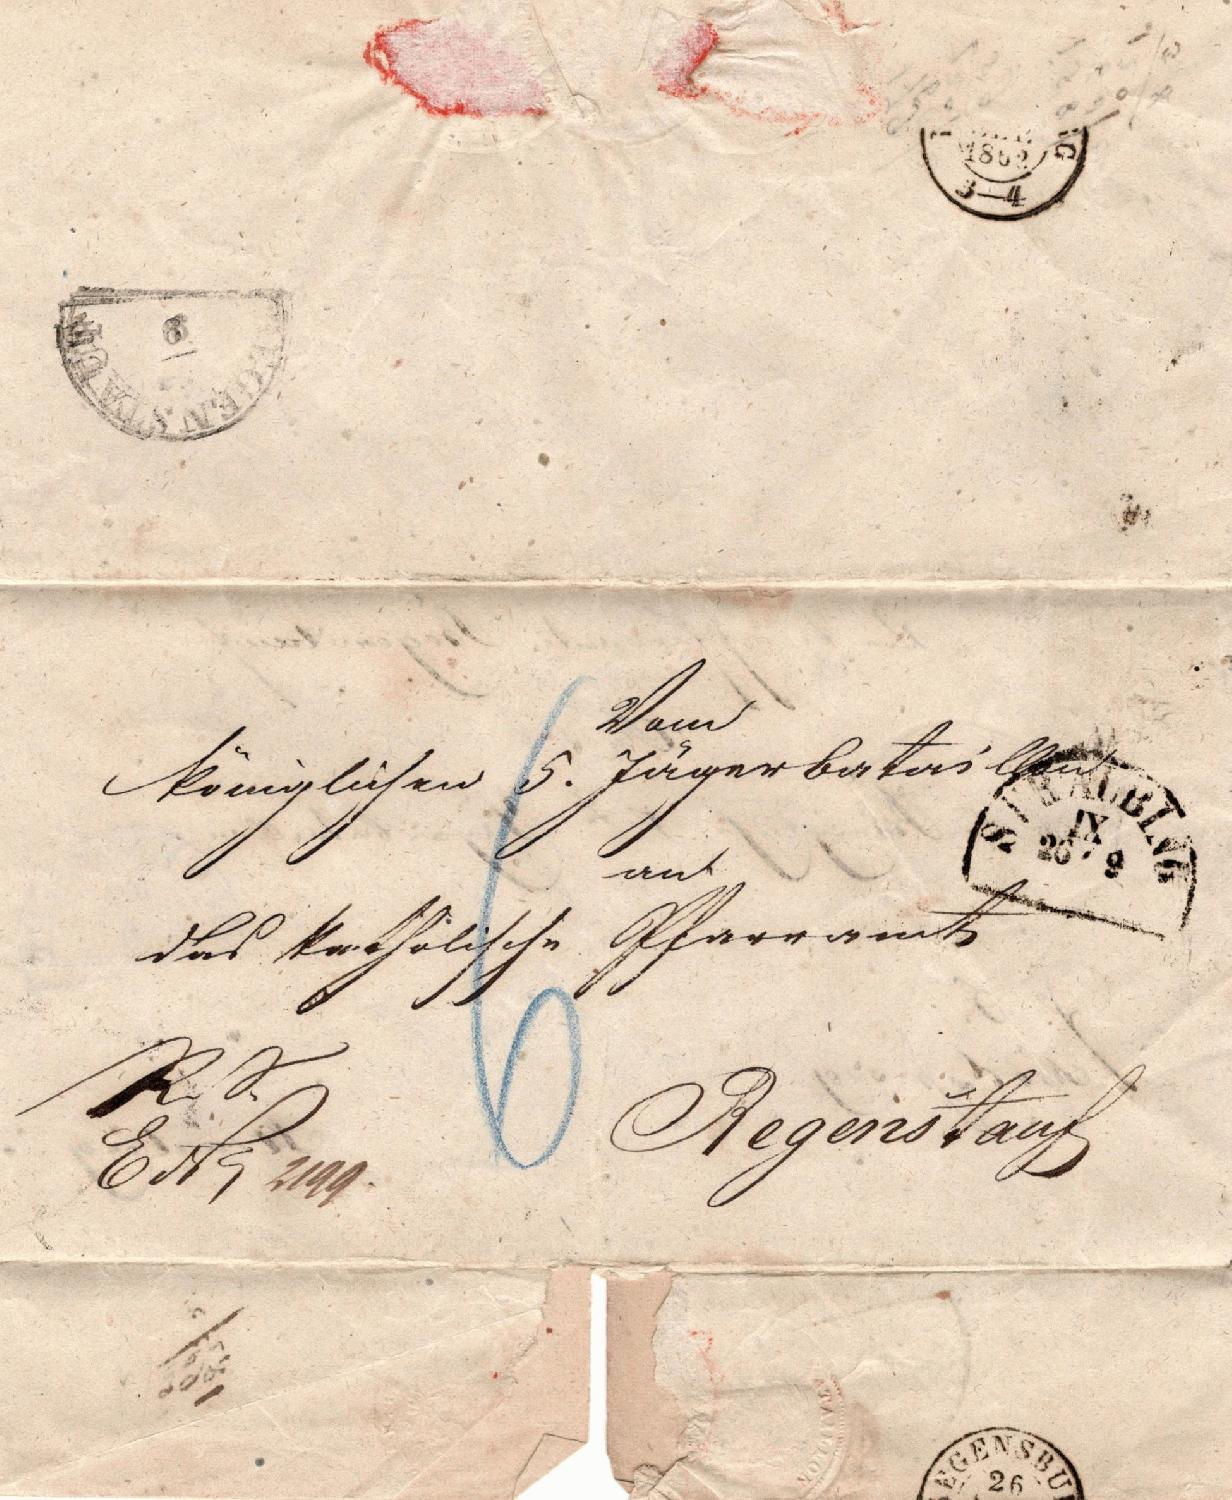 1862
3—4
8
Vom
königlichen 5. Jägerbataillon
STRAUBING
IX
26 9
an
das katholische Pfarramt
R. S.
Regenstauf
E. Nr. 2199.
REGENSBU
26